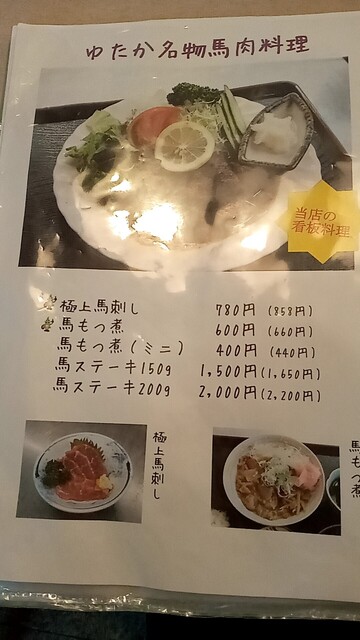 ゆたか名物馬肉料理
当店の
看板料理
極上馬刺し 780円 (858円)
馬もつ煮 600円 (660円)
馬もつ煮(ミニ) 400円 (440円)
馬ステーキ150g 1,500円(1,650円)
馬ステーキ200g 2,000円(2,200円)
極上馬刺し
馬もつ煮